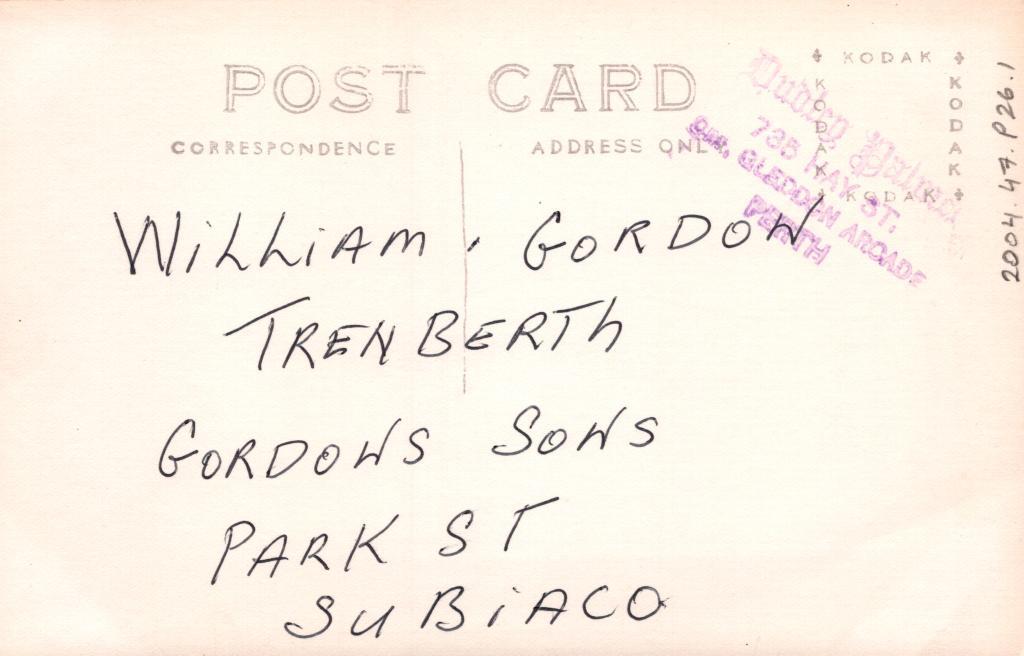 POST CARD
CORRESPONDENCE
ADDRESS ONLY
KODAK
KODAK
KODAK
KODAK
Dudley
735 HAY ST.
OPP. GLEDDEN ARCADE
PERTH
2004.47.P26.1
WILLIAM, GORDON
TRENBERTH
GORDONS SONS
PARK ST
SUBIACO